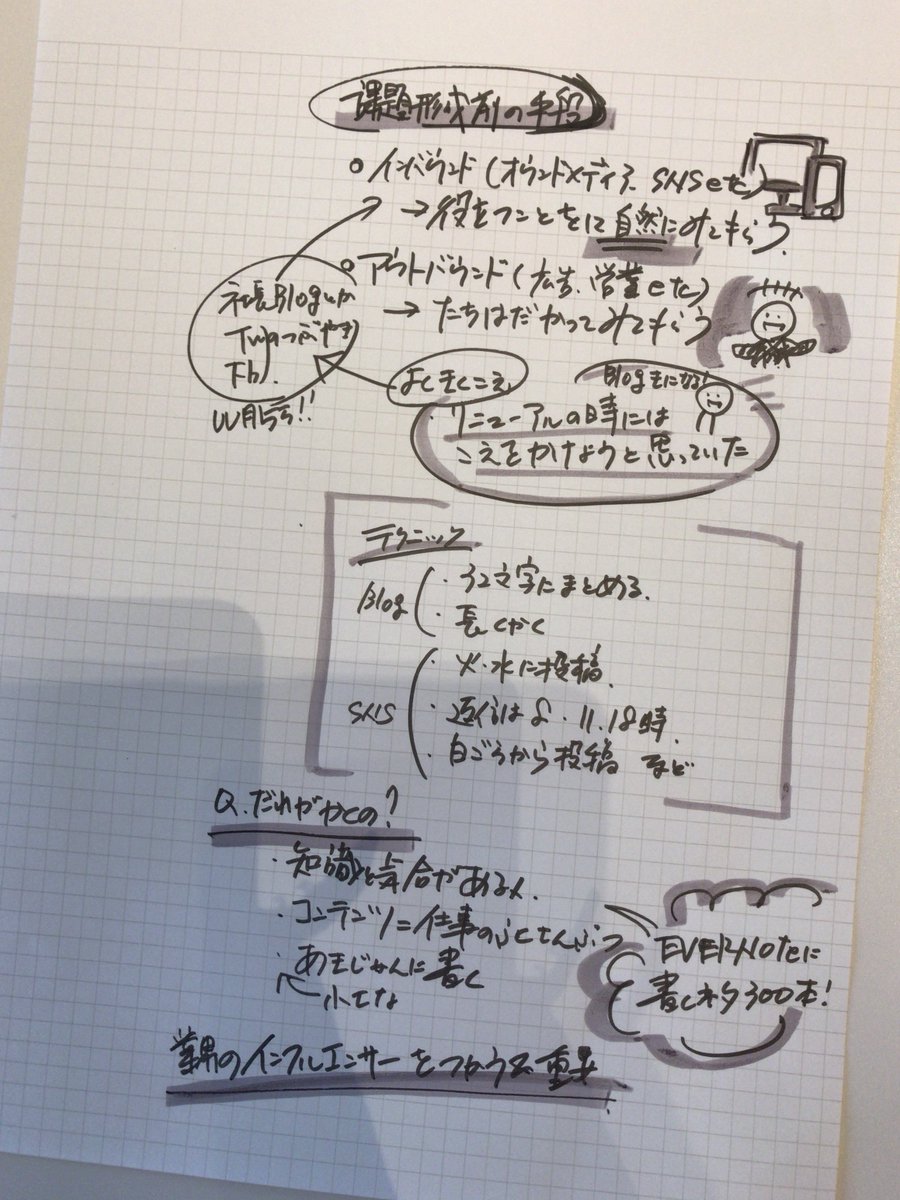 課題形成剤の手段
○インバウンド(オウンドメディア、SNS etc)
→役立つことをして自然にみてもらう
○アウトバウンド(広告、営業etc)
→たちはだかってみてもらう
社長Blog
Twのつぶやき
Fb
よくきくこえ
Blogきになる!
・リニューアルの時には
こえをかけようと思っていた
テクニック
Blog
・32文字にまとめる.
・長くかく
SNS
・火・水に投稿.
・返信は8.11.18時.
・日ごろから投稿 など
Q.だれがかくの?
・知識と気合がある人.
・コンテンツ=仕事のふくさんぶつ
・あきじかんに書く
EVERNoteに
書くネタ300本!
業界のインフルエンサーをつかうのも重要!